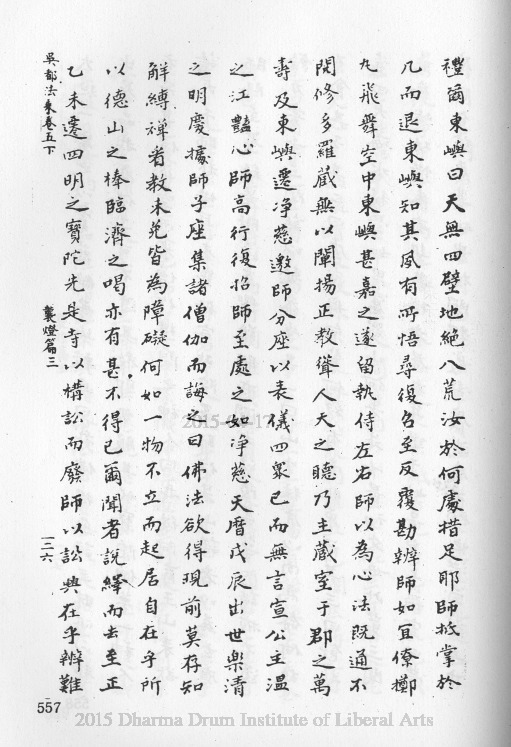 禮爾東嶼曰天無四壁地絶八荒汝於何處措足耶師抵掌於
几而退東嶼知其夙有所悟尋復名至反覆勘辨師如宜僚擲
九飛舞空中東嶼甚嘉之遂留執侍左右師以為心法既通不
閱修多羅藏無以闡揚正教聳人天之聽乃主藏室于郡之萬
壽及東嶼遷净慈邀師分座以表儀四衆已而無言宣公主温
之江豔心師高行復招師至處之如净慈天曆戊辰出世樂清
之明慶據師子座集諸僧伽而誨之曰佛法欲得現前莫存知
解縛禪看教未免皆為障礙何如一物不立而起居自在乎所
以德山之棒臨濟之喝亦有甚不得已爾聞者說繹而去至正
乙未遷四明之寶陀先是寺以構訟而廢師以訟興在乎辦難
吳都法乘卷五下 襲燈篇三 一二六
557
2015-04-17
2015 Dharma Drum Institute of Liberal Arts